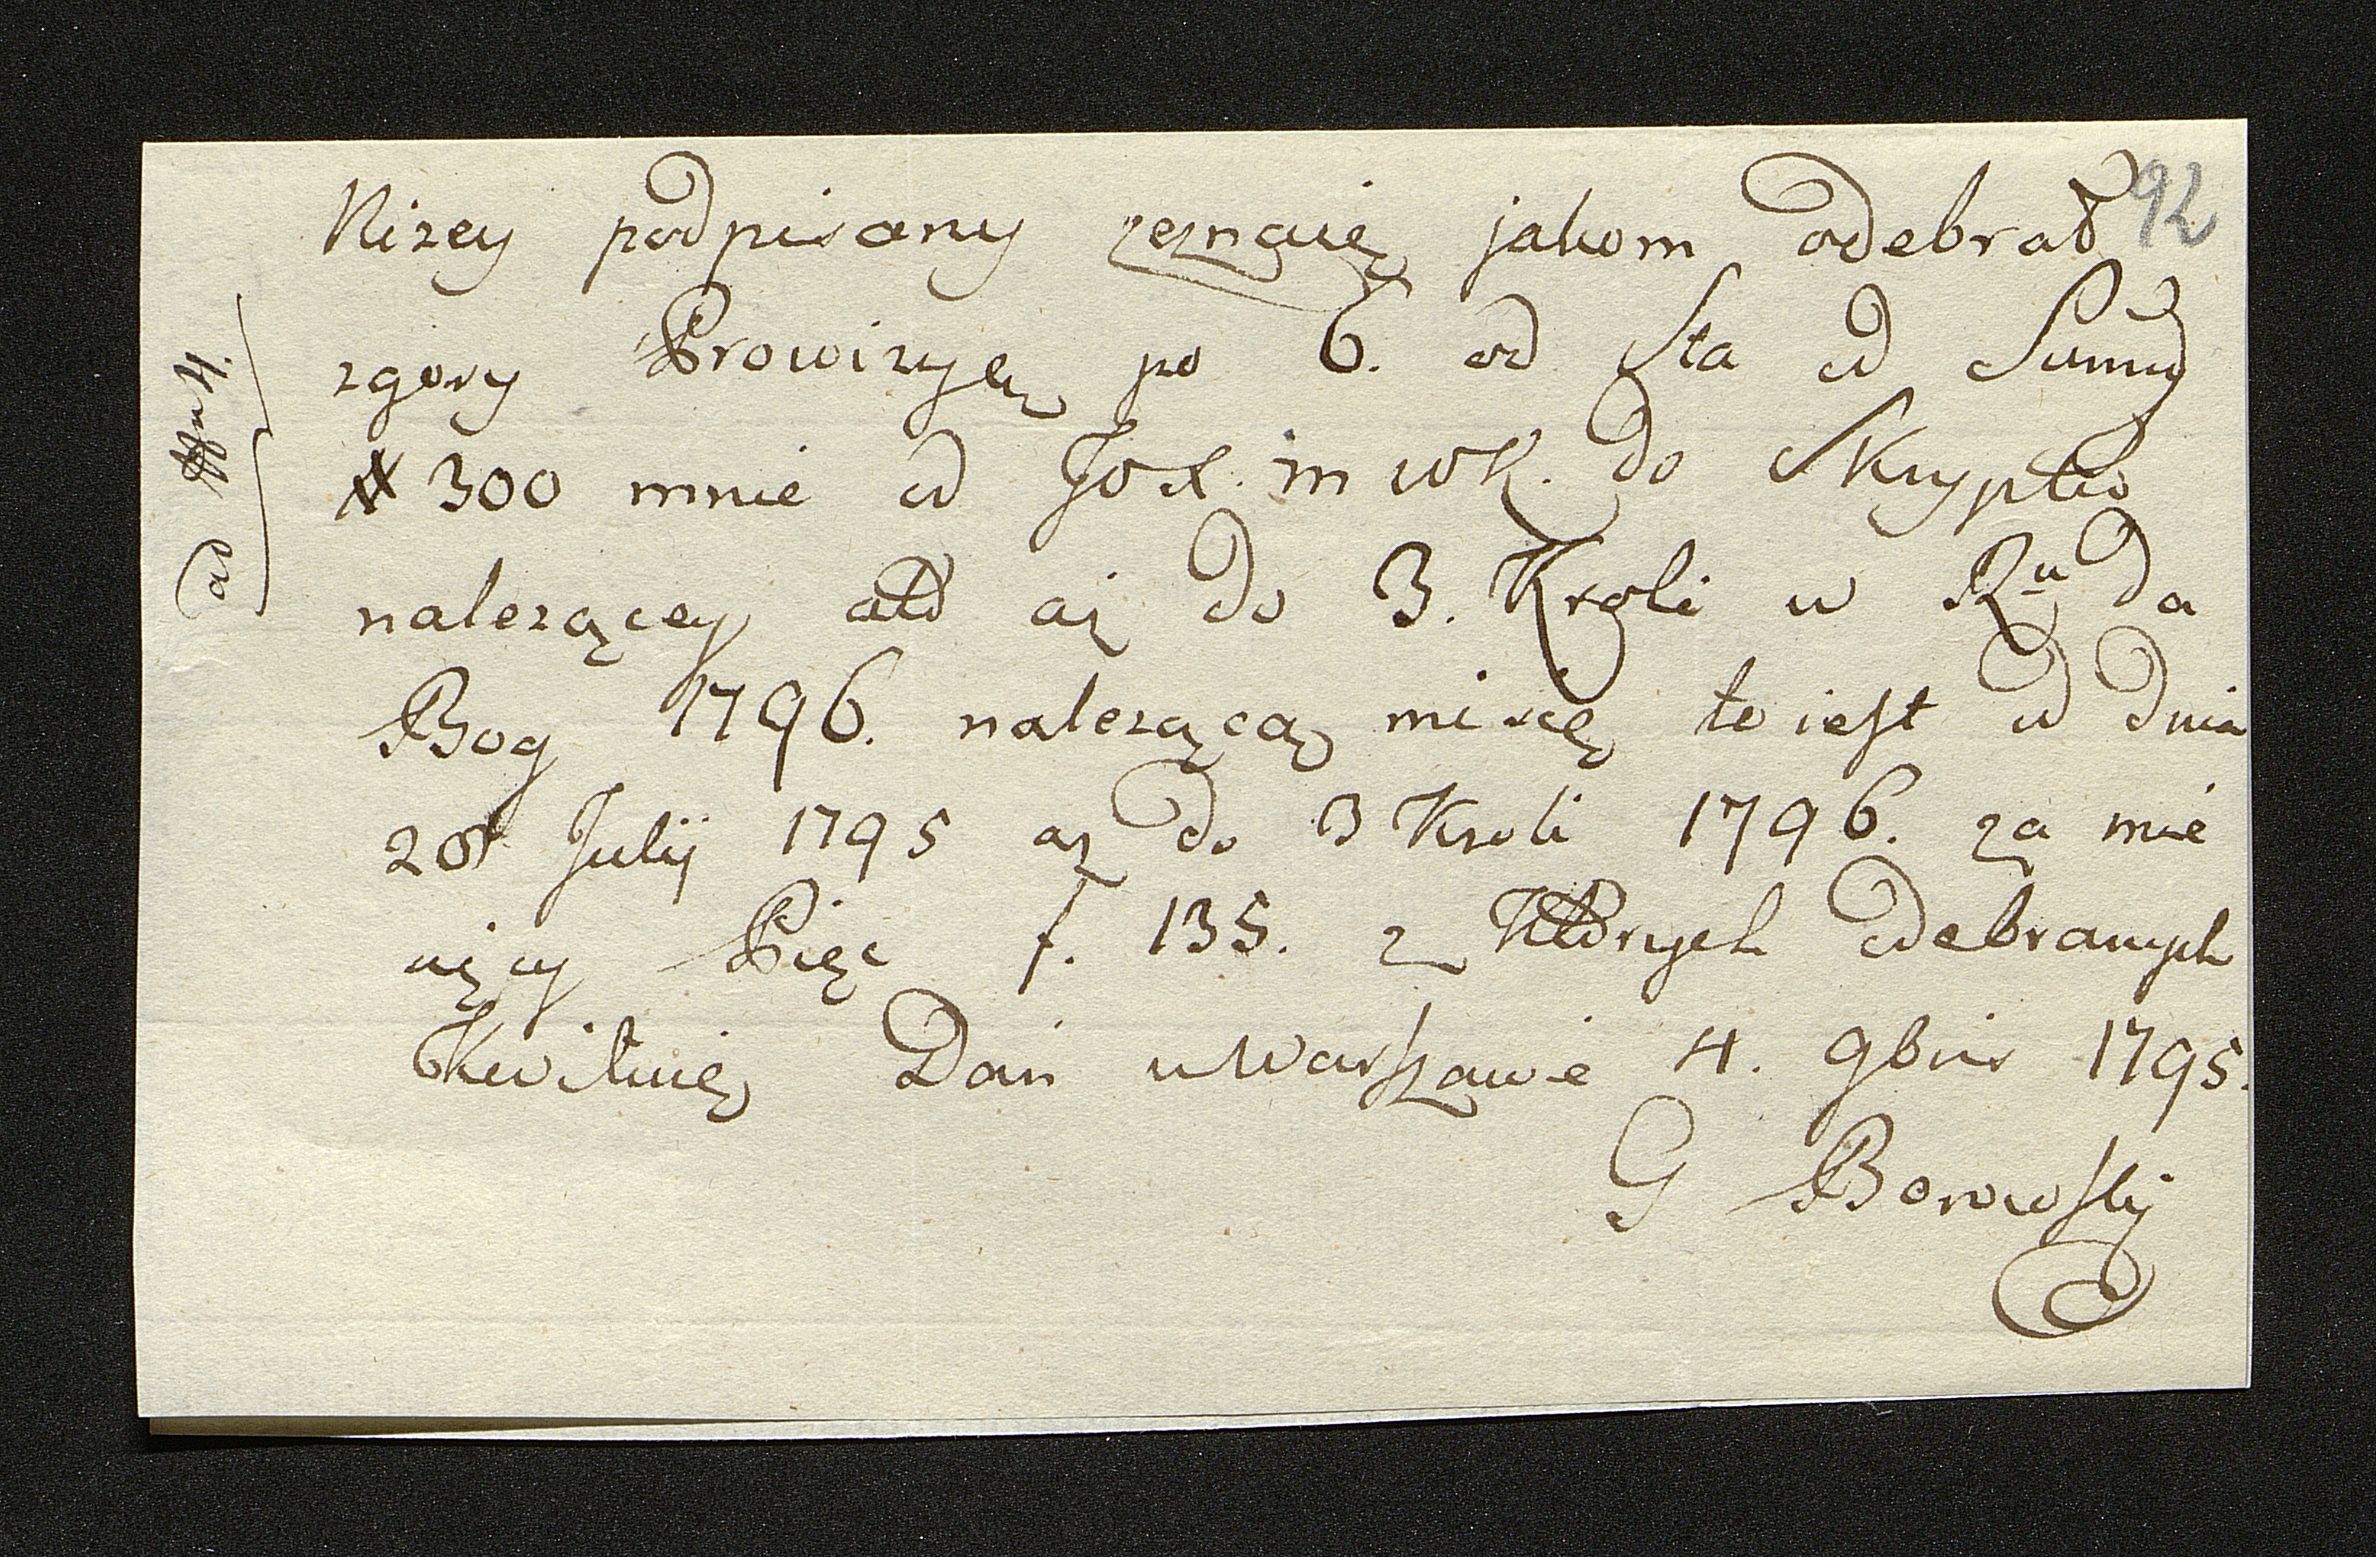 92
Nizey podpisany zeznaię jakom odebrał
zgory Prowizyą po 6. od Sta od Sumy
# 300 mnie od JoX. m do Skryptu
należącey aż do 3. Kroli w Ru da
Bog 1796. należącą mi się to iest od dnia
20 Julij 1795 aż do 3 Kroli 1796. za mie
sięcy Pięć f. 135. z Których odebranych
Kwituię Dań w Warszawie 4. 9bris 1795.
G Borowskij
ad 4.